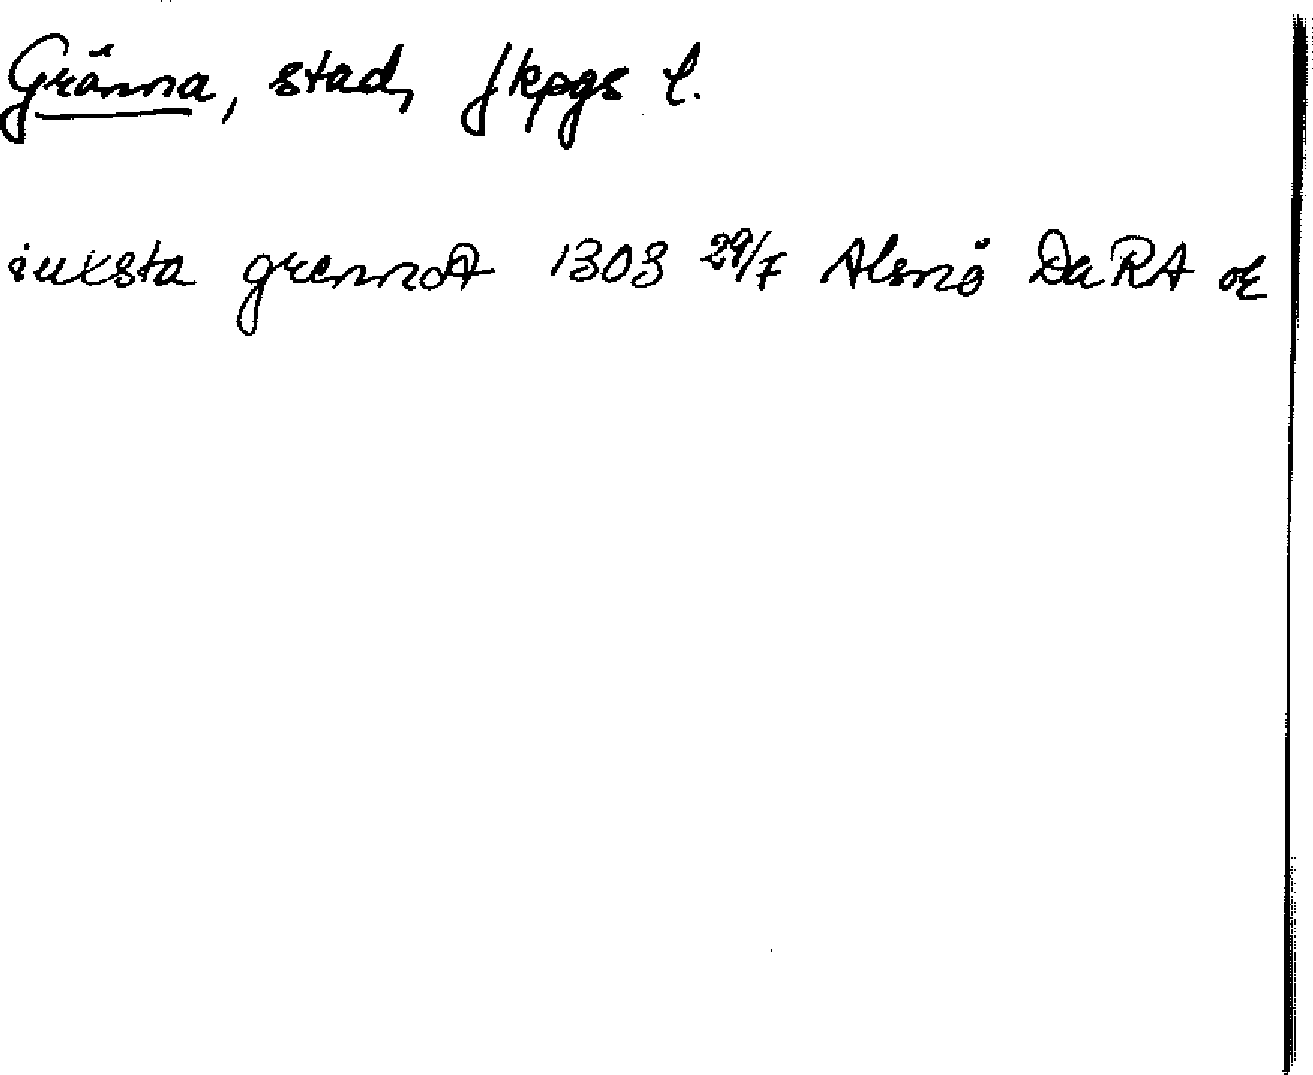 Gränna, stad, Jkpgs l.
iuxsta grennoA 1303 29/7 Alsnö DaRA or